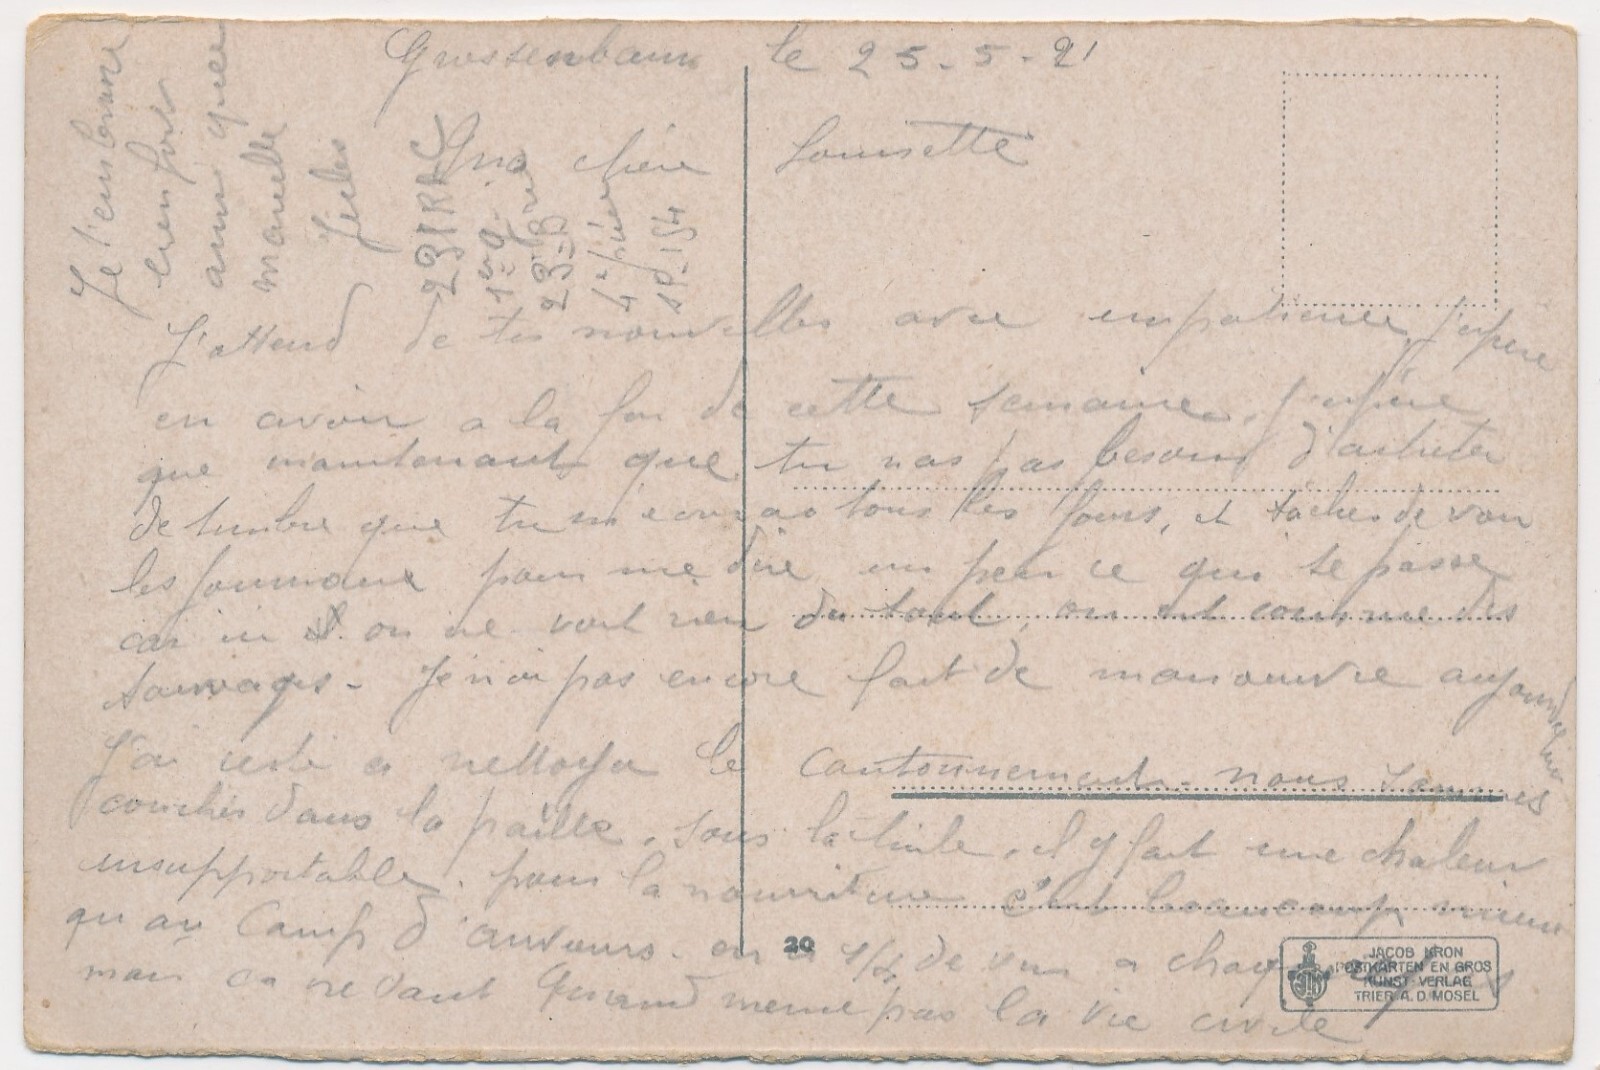 Grossenbaum le 25-5-21
Ma chère Louisette
J'attend de tes nouvelles avec impatience, j'espère
en avoir a la fin de cette semaine, j'espère
que maintenant que tu nas pas besoin d'acheter
de timbre que tu m'ecriras tous les jours, et tâches de voir
les journaux pour me dire un peu ce qui se passe
car ici on ne voit rien du tout, on est comme des
sauvages - Je n'ai pas encore fait de manoeuvre aujourd'hui
J'ai resté a nettoyer le cantonnement - nous sommes
couchés dans la paille, sous la tuile, il y fait une chaleur
insupportable, pour la nourriture c'est beaucoup mieux
qu au Camp d'auvours. on a 1/4 de vin a chaque repas
mais ca ne vaut Quand meme pas la vie civile
Je t'embrasse
bien fort
ainsi que
marcelle
Jules
23 IRAC
23-B
4e pièce
SP-154
20
JACOB KRON
POSTKARTEN EN GROS
KUNST-VERLAG
TRIER A.D. MOSEL